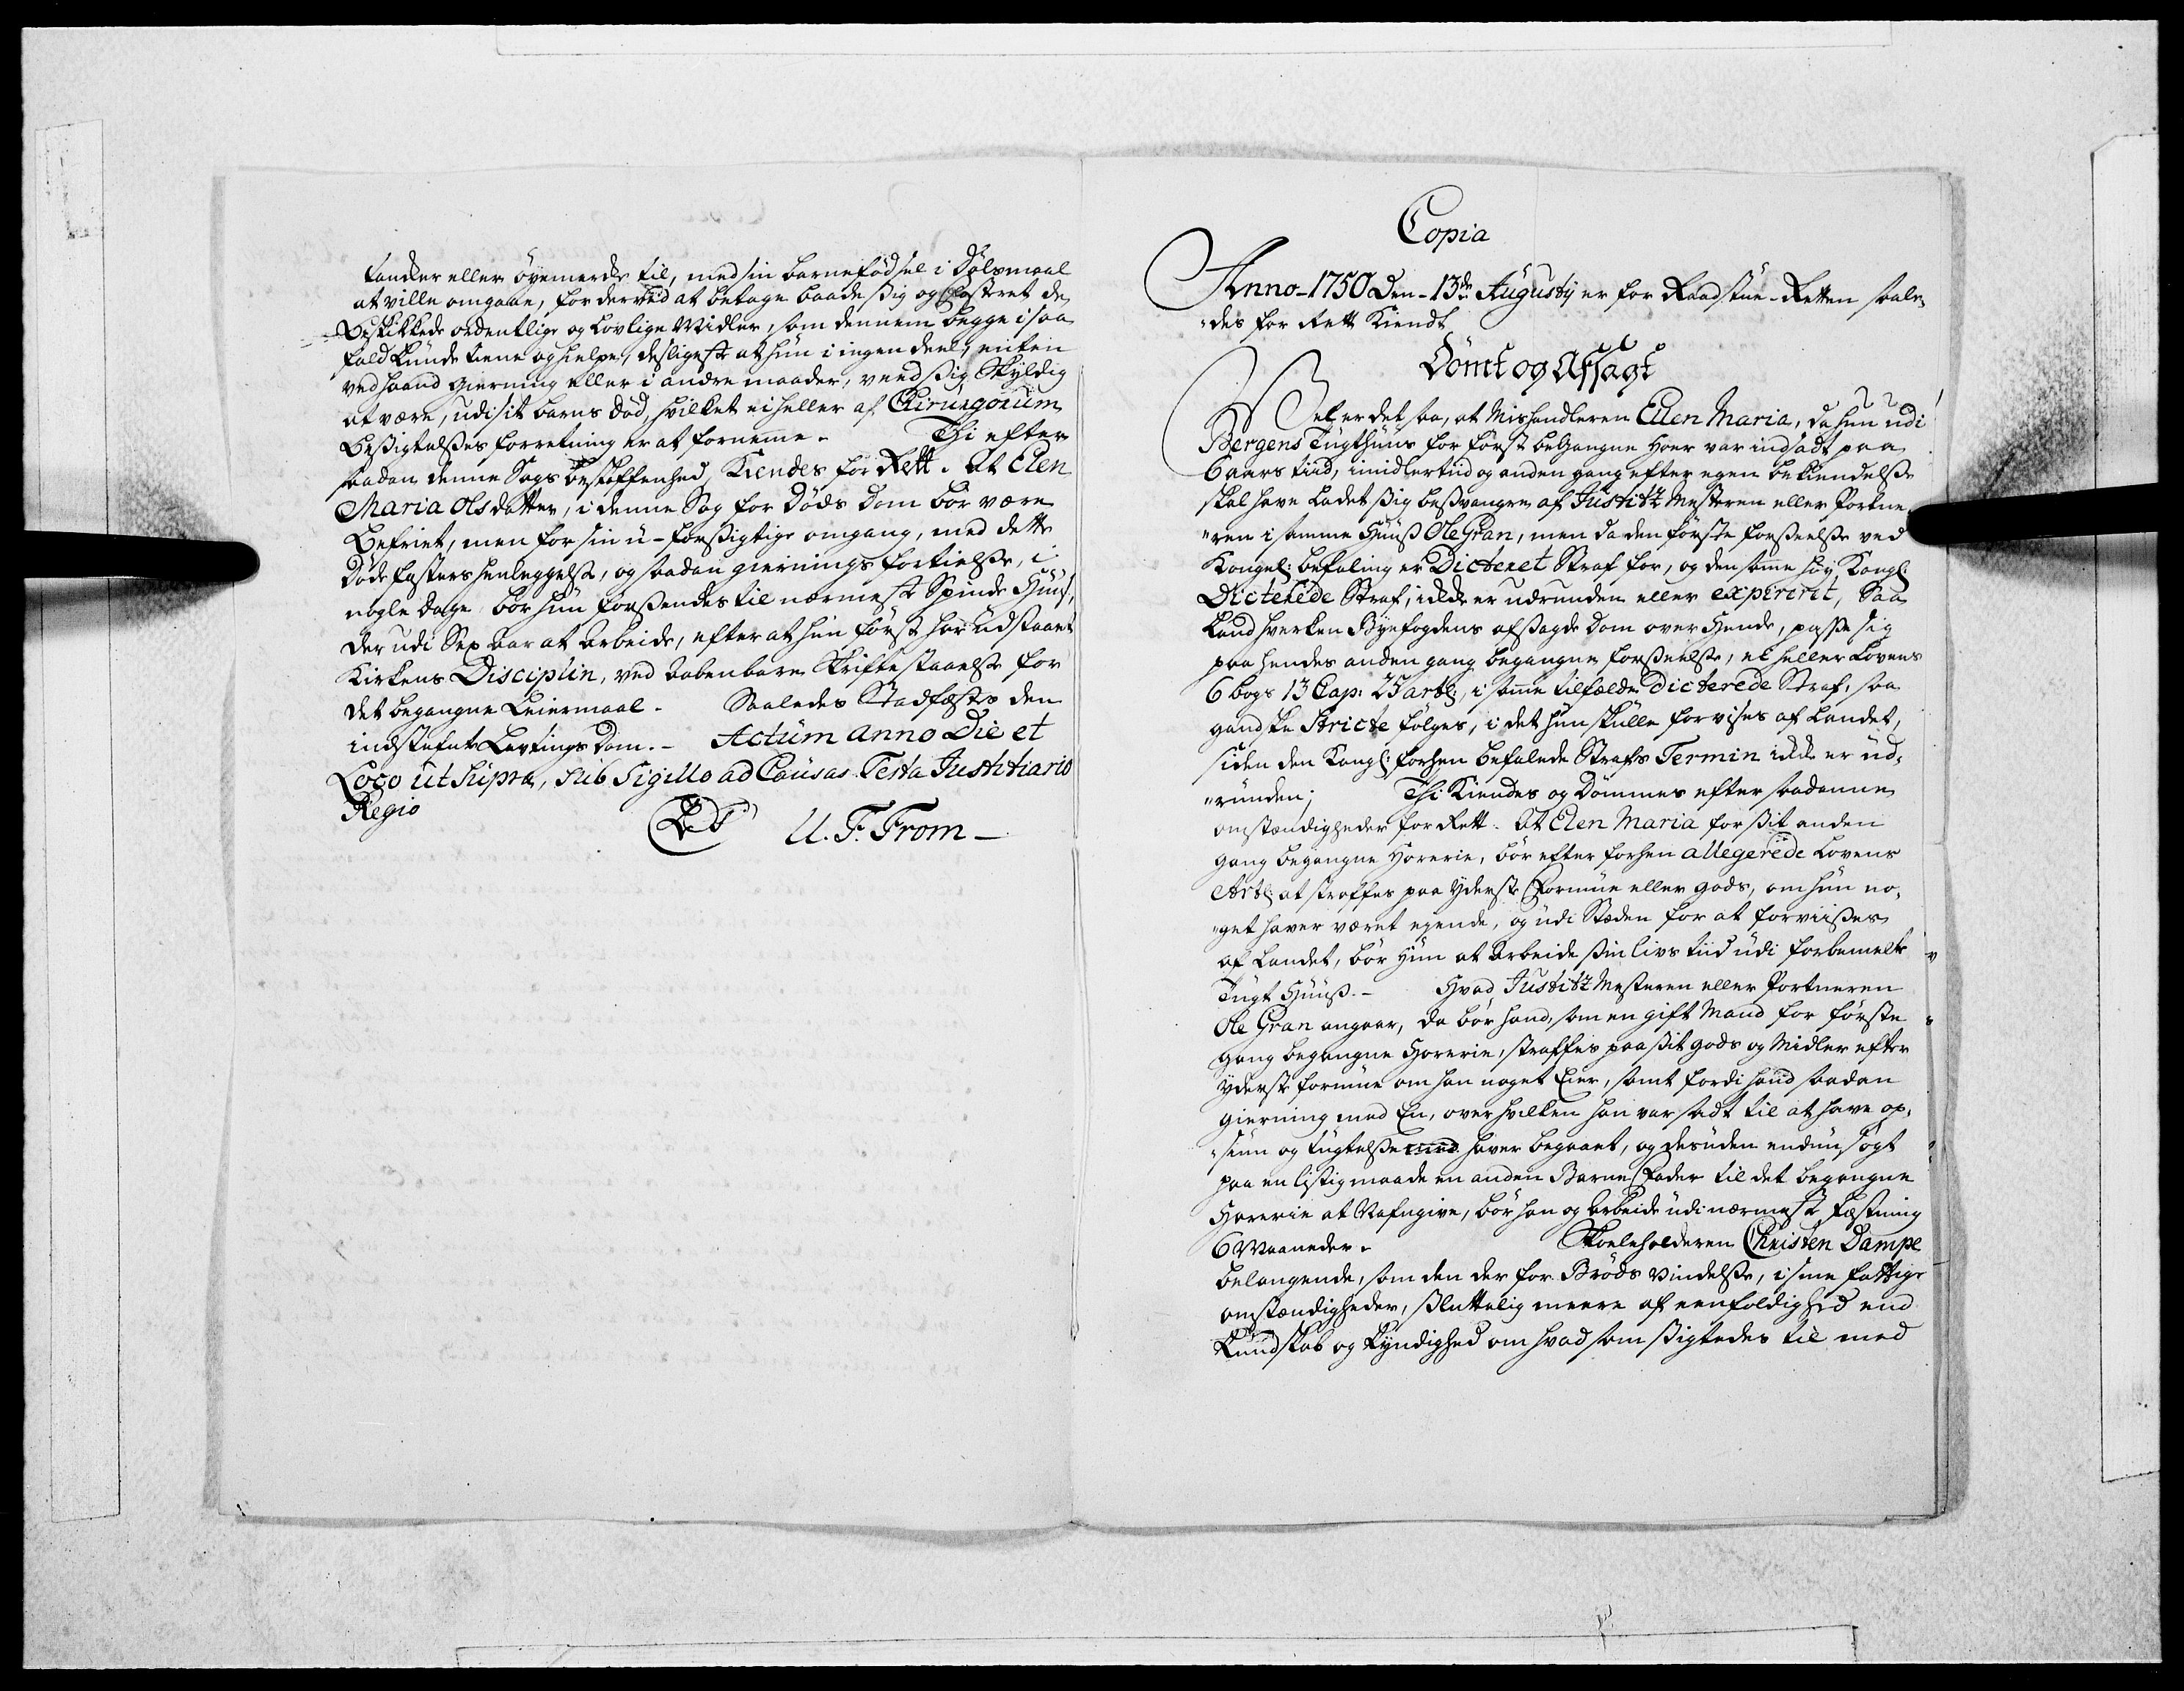 tanker eller øyemerke til, med sin barnefødsel i Dølsmaal
at ville omgaae, for derved at betage baade sig og Fosteret de
Beskikkede ordentlige og Lovlige Midler, som dennem begge i saa
fald kunde tiene og hielpe, desligeste at hun i ingen deel, enten
ved haand gierning eller i andre maader, veed sig Skyldig
at være, udi sit barns død, hvilket ei heller af Chirurgorum
Besigtelses forretning er at fornemme. Thi efter
saadan denne Sags beskaffenhed, Kiendes for Rett. At Elen
Maria Olsdatter, i denne Sag for Døds Dom bør være
Befriet, men for sin u-forsigtige omgang, med dette
Døde fosters henleggelse, og saadan giernings fortielse, i
nogle dage, bør hun forsendes til nærmeste Spinde Huus,
der udi Sex aar at arbeide, efter at hun først har udstaaet
Kirkens Disciplin, ved aabenbare Skriftestaaelse for
det begangne Leiermaal. Saaledes Stadfæstes den
indstefnte Lavtings Dom. - Actum Anno Die et
Loco ut Supra, sub Sigillo ad Causas. Testa Justitiario
Regio
U. F. From -
Copia
Anno 1750 Den 13de Augusty er for Raadstue-Retten saale,
"des for Rett Kiendt
Dømt og Afsagt
Vel er det saa, at Mishandleren Ellen Maria, da hun udi
Bergens Tugthuus for først beGangne Hoer var indsadt paa
6 aars tiid, imidlertiid og anden gang efter egen bekiendelse
skal have Ladet sig besvangre af Justitz Mesteren eller Portne,
"ren i samme Huus Ole Gran, men da den første forseelse ved
Kongel: befaling er Dicteret Straf for, og den samme høy Kongl:
Dicterede Straf, ikke er udrunden eller expirerit, Saa
kand hverken Byefogdens afsagde Dom over Hende, passe sig
paa hendes anden gang begangne forseelse, ei heller Lovens
6 bogs 13 Cap: 25 artl:, i samme tilfælde Dicterede Straf, saa
gandske Stricte følges, i det hun skulle forvises af Landet,
siden den Kongl: forhen befalede Strafs Termin ikke er ud,
"runden; Thi Kiendes og Dømmes efter saadanne
omstændigheder for Rett. At Elen Maria for sit anden
gang begangne Horerie, bør efter forhen allegerede Lovens
Artl: at straffes paa yderste Formue eller gods, om hun no,
"get haver været eyende, og udi Stæden for at forviises
af Landet, bør Hun at arbeide sin livs tiid udi forbemelte
Tugt Huus. - Hvad Justitz Mesteren eller Portneren
Ole Gran angaar, da bør hand, som en gift Mand for første
gang begangne Horerie, straffes paa sit gods og Midler efter
yderste formue om han noget Eier, samt fordi hand saadan
gierning med En, over hvilken han var sadt til at have op,
"siun og tugtelse haver begaaet, og desuden endnu søgt
paa en listig maade en anden Barne Fader til det begangne
Horerie at Nafngive, bør han og arbeide udi nærmeste fæstning
6 Maaneder. Skoeleholderen Christen Dampe
belangende, som den der for Brøds vindelse, i sine fattige
omstændigheder, sluttelig meere af eenfoldighed end
Kundskab og kyndighed om hvad som sigtedes til med